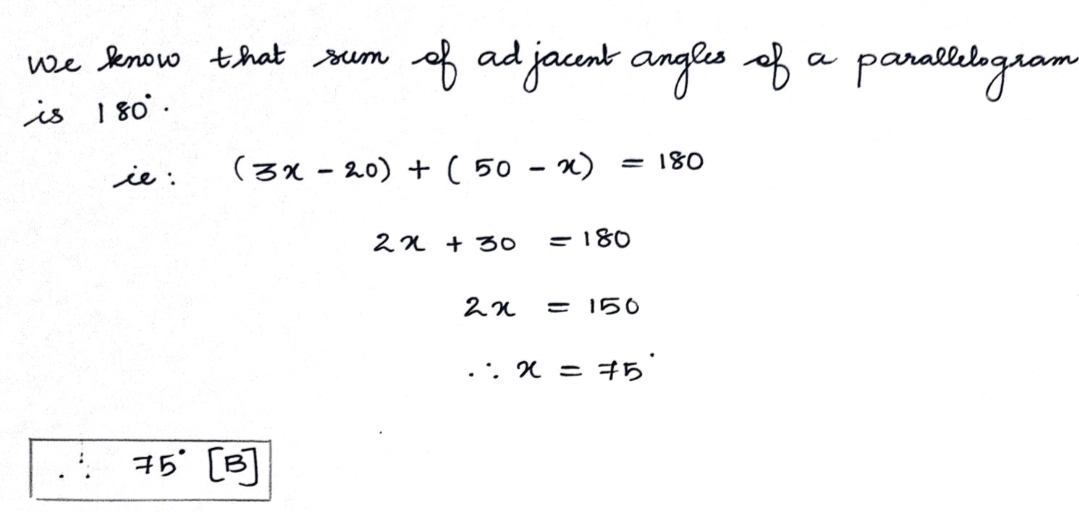 we know that sum of adjacent angles of a parallelogram
is 180°.
ie: (3x - 20) + (50 - x) = 180
2x + 30 = 180
2x = 150
∴ x = 75°
∴ 75° [B]